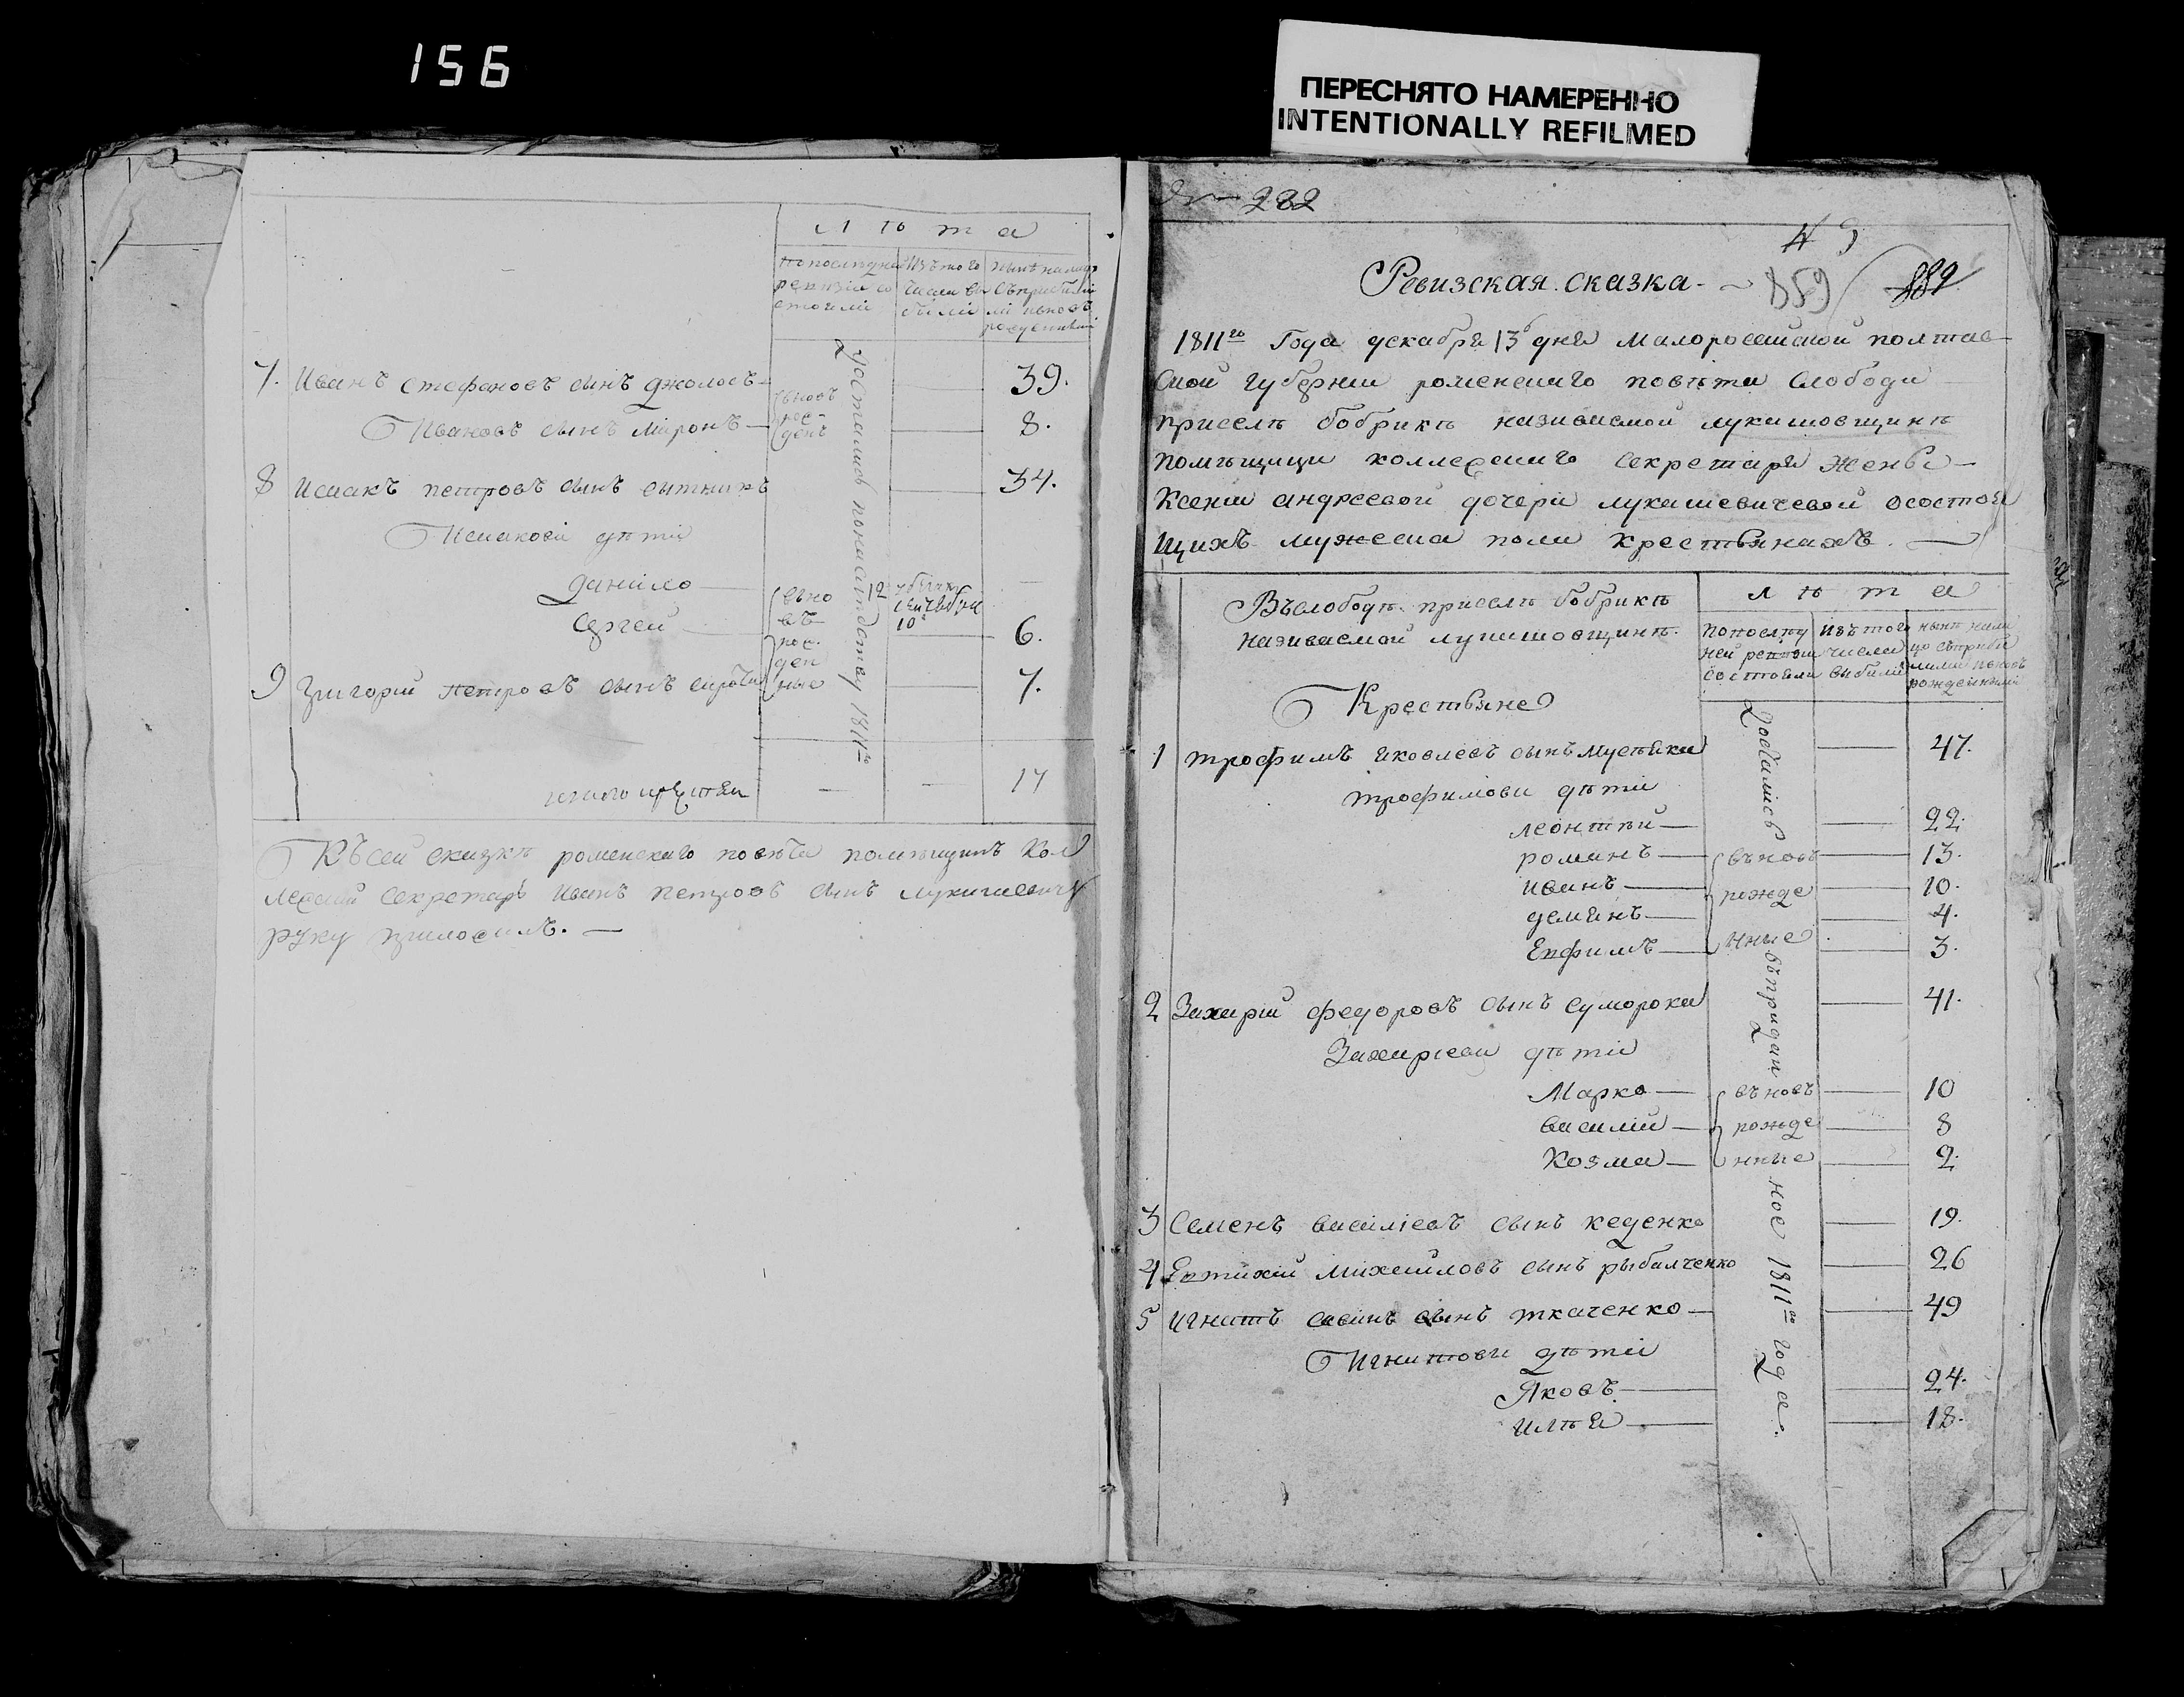 156
ПЕРЕСНЯТО НАМЕРЕННО
INTENTIONALLY REFILMED
Лѣта
По последней ревизии состояли
Изъ того числа выбили
Ныне налицо съ прибылими и вновь рожденими
7. Иванъ Стефановъ сынъ Джолосъ — 39.
Ивановъ сынъ Миронъ — вновь рожденъ — 8.
8 Исаакъ Петровъ сынъ Ситникъ — 34.
Исаакови дѣти
Данило — 12
Сергей — 6.
вновь рожденные
9 Григорий Петровъ сынъ — 7.
Досталис по наследству 1811го
Итого — — 17
Къ сей сказкѣ роменскаго повѣта помещикъ Кол
лежский Секретарь Иванъ Петровъ сынъ Лукашевичъ
руку приложилъ. —
№ 282
49
Ревизская сказка — 859 889
1811го Года декабря 13 дня Малоросийской полтав
ской губернии роменскаго повѣта Слободи
приселѣ бобрикѣ називаемой лукашовщинѣ
помѣщици коллежскаго Секретаря Жены —
Ксении андреевой дочери лукашевичевой о состоя
щихъ мужеска пола крестьянахъ. —
Въ слободѣ приселѣ бобрикѣ
називаемой лукашовщинѣ.
Лѣта
По последней ревизии состояли
Изъ того числа выбили
Ныне налицо съ прибылими и вновь рожденними
Крестьяне
1 Трофимъ Яковлевъ сынъ Мусѣйка — 47.
Трофимови дѣти
Леонтѣй — 22.
романъ — 13.
иванъ — 10.
демянъ — 4.
Евфимъ — 3.
вновь рожденные
2 Захарий Федоровъ сынъ Суморока — 41.
Захариеви дѣти
Марко — 10
василий — 8
Козма — 2.
вновь рожденные
3 Семенъ василиевъ сынъ кеденко — 19.
4 Евтихий Михайловъ сынъ рыбалченко — 26
5 Игнатъ савинъ сынъ ткаченко — 49
Игнатови дѣти
Яковъ — 24.
илѣя — 18.
Досталис въ приданное 1811го года.